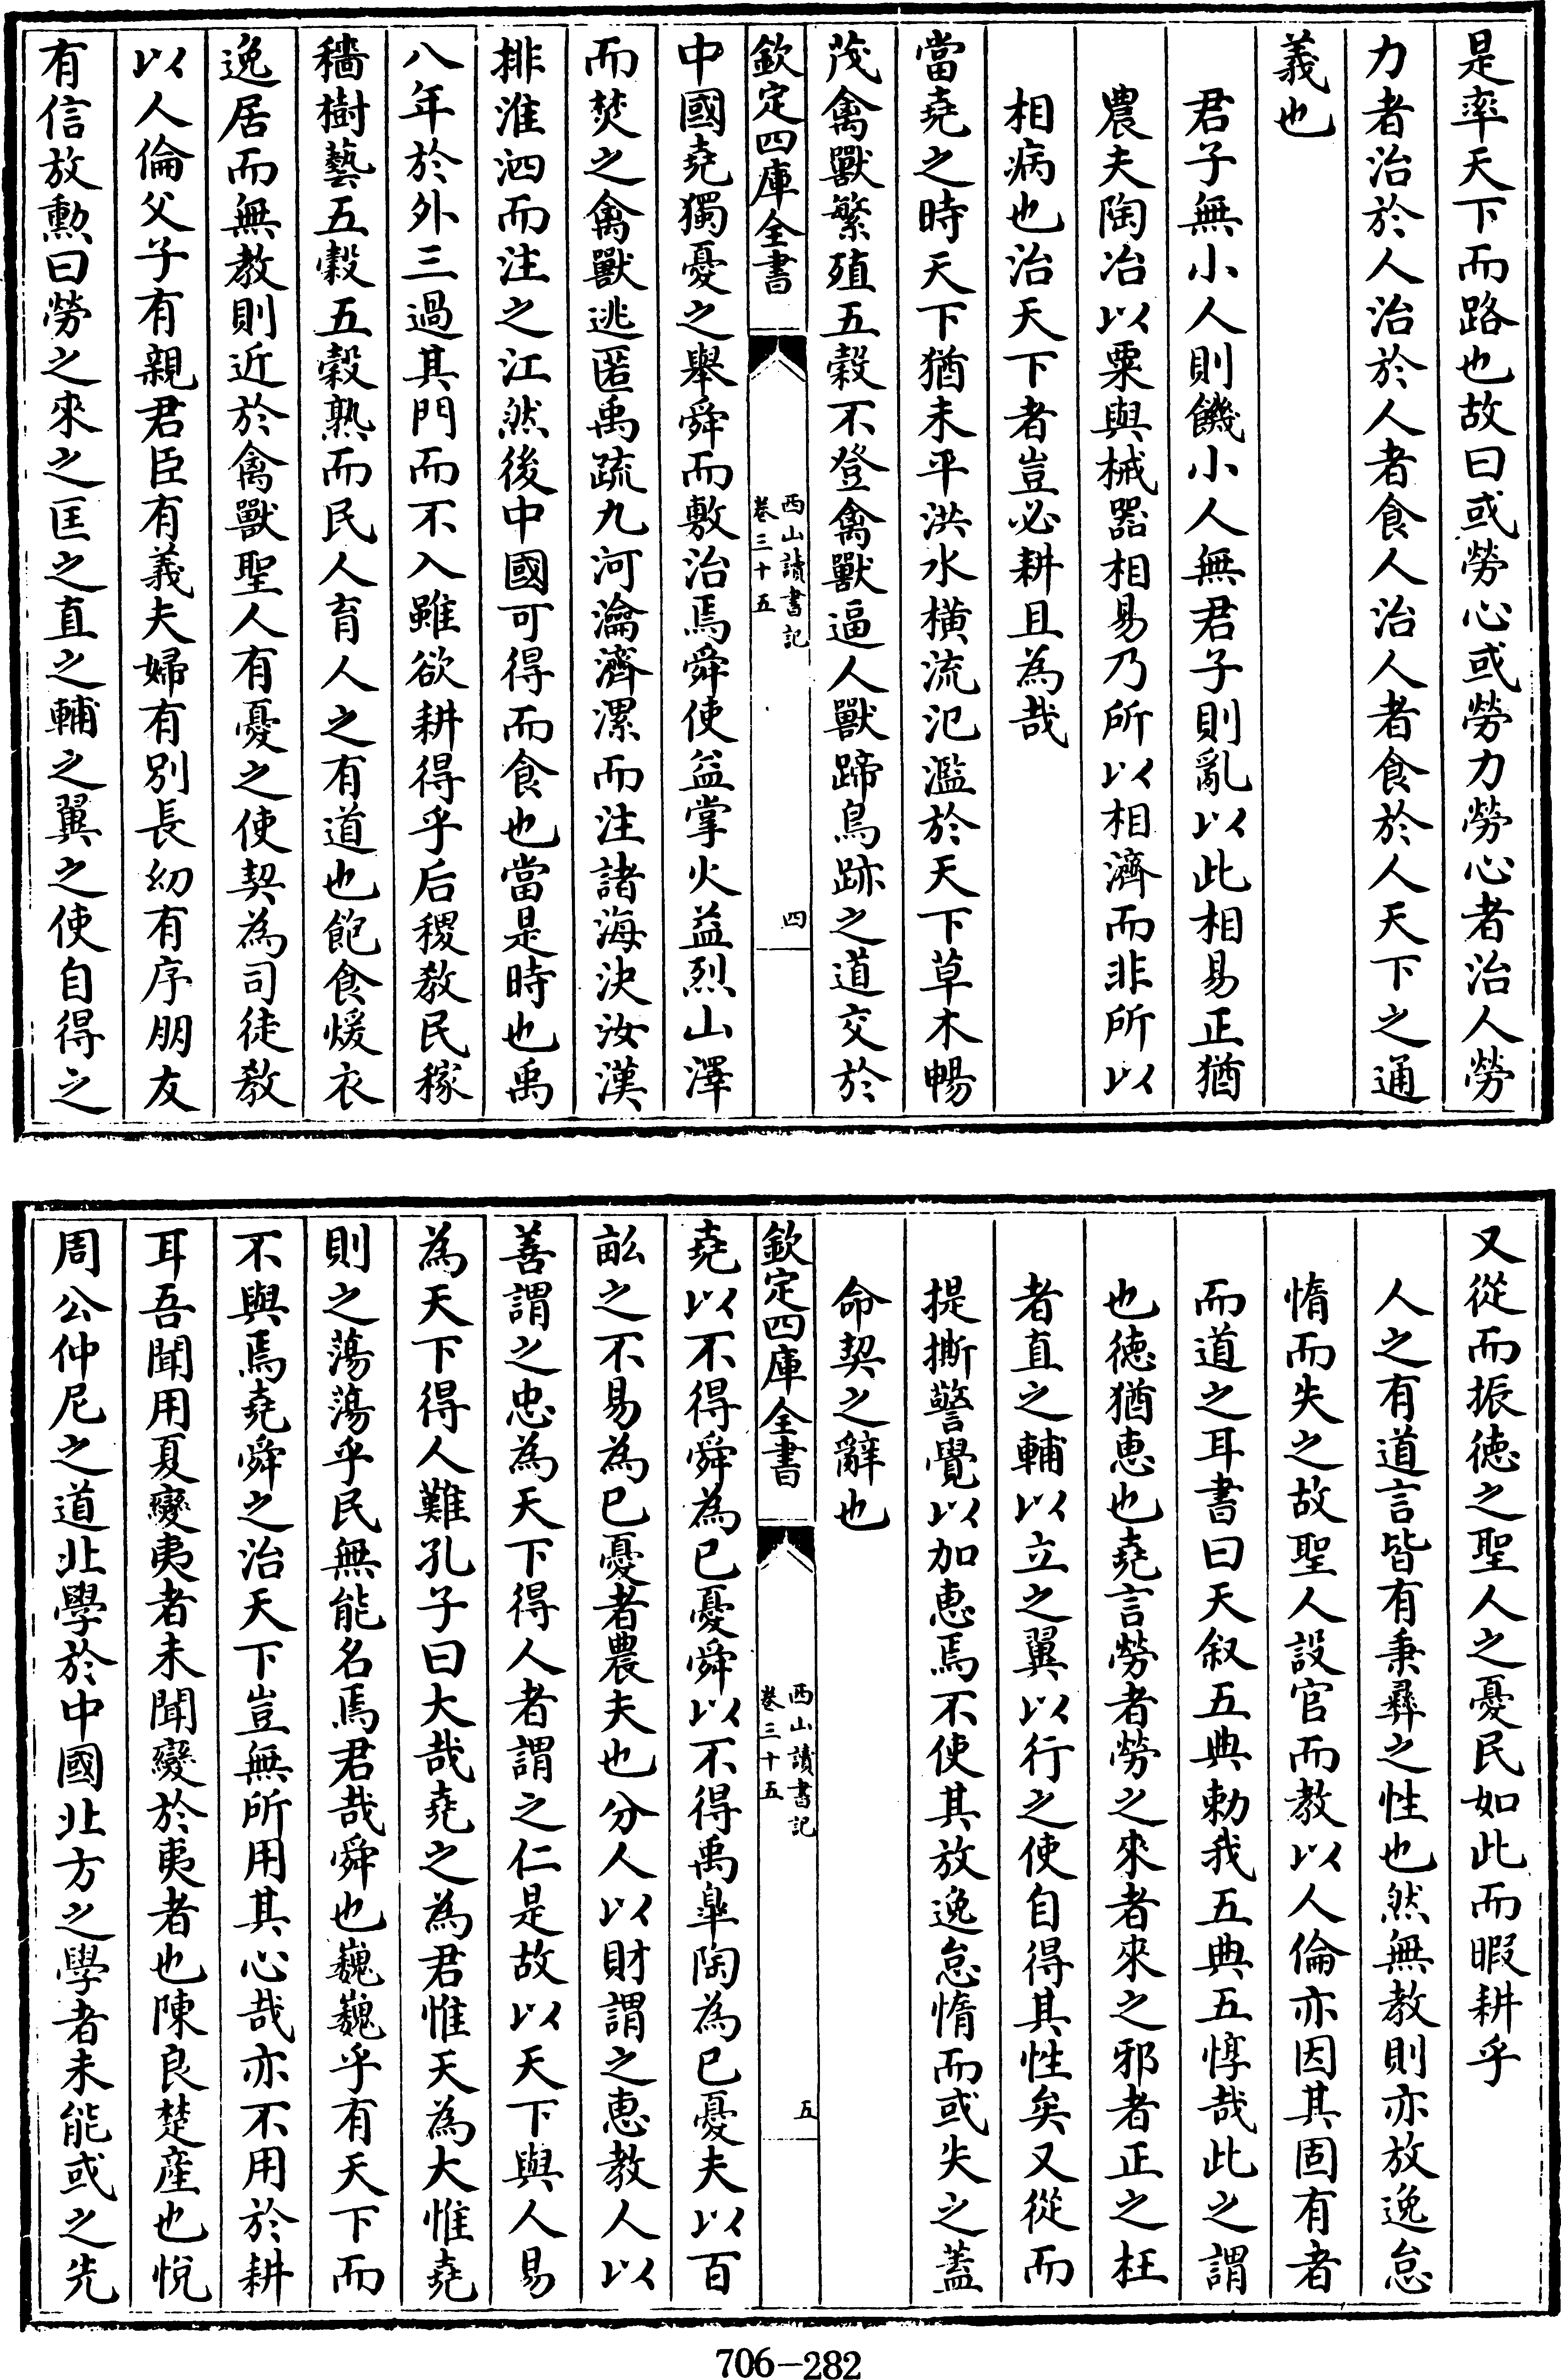 是率天下而路也故曰或勞心或勞力勞心者治人勞
力者治於人治於人者食人治人者食於人天下之通
義也
君子無小人則饑小人無君子則亂以此相易正猶
農夫陶冶以粟與械器相易乃所以相濟而非所以
相病也治天下者豈必耕且為哉
當堯之時天下猶未平洪水橫流氾濫於天下草木暢
茂禽獸繁殖五穀不登禽獸逼人獸蹄鳥跡之道交於
欽定四庫全書
西山讀書記
卷三十五
四
中國堯獨憂之舉舜而敷治焉舜使益掌火益烈山澤
而焚之禽獸逃匿禹疏九河瀹濟漯而注諸海決汝漢
排淮泗而注之江然後中國可得而食也當是時也禹
八年於外三過其門而不入雖欲耕得乎后稷教民稼
穡樹藝五穀五穀熟而民人育人之有道也飽食煖衣
逸居而無教則近於禽獸聖人有憂之使契為司徒教
以人倫父子有親君臣有義夫婦有別長幼有序朋友
有信放勲曰勞之來之匡之直之輔之翼之使自得之
又從而振徳之聖人之憂民如此而暇耕乎
人之有道言皆有秉彛之性也然無教則亦放逸怠
惰而失之故聖人設官而教以人倫亦因其固有者
而道之耳書曰天叙五典勅我五典五惇哉此之謂
也徳猶恵也堯言勞者勞之來者來之邪者正之枉
者直之輔以立之翼以行之使自得其性矣又從而
提撕警覺以加恵焉不使其放逸怠惰而或失之蓋
命契之辭也
欽定四庫全書
西山讀書記
卷三十五
五
堯以不得舜為已憂舜以不得禹臯陶為已憂夫以百
畝之不易為已憂者農夫也分人以財謂之恵教人以
善謂之忠為天下得人者謂之仁是故以天下與人易
為天下得人難孔子曰大哉堯之為君惟天為大惟堯
則之蕩蕩乎民無能名焉君哉舜也巍巍乎有天下而
不與焉堯舜之治天下豈無所用其心哉亦不用於耕
耳吾聞用夏變夷者未聞變於夷者也陳良楚產也悅
周公仲尼之道北學於中國北方之學者未能或之先
706-282